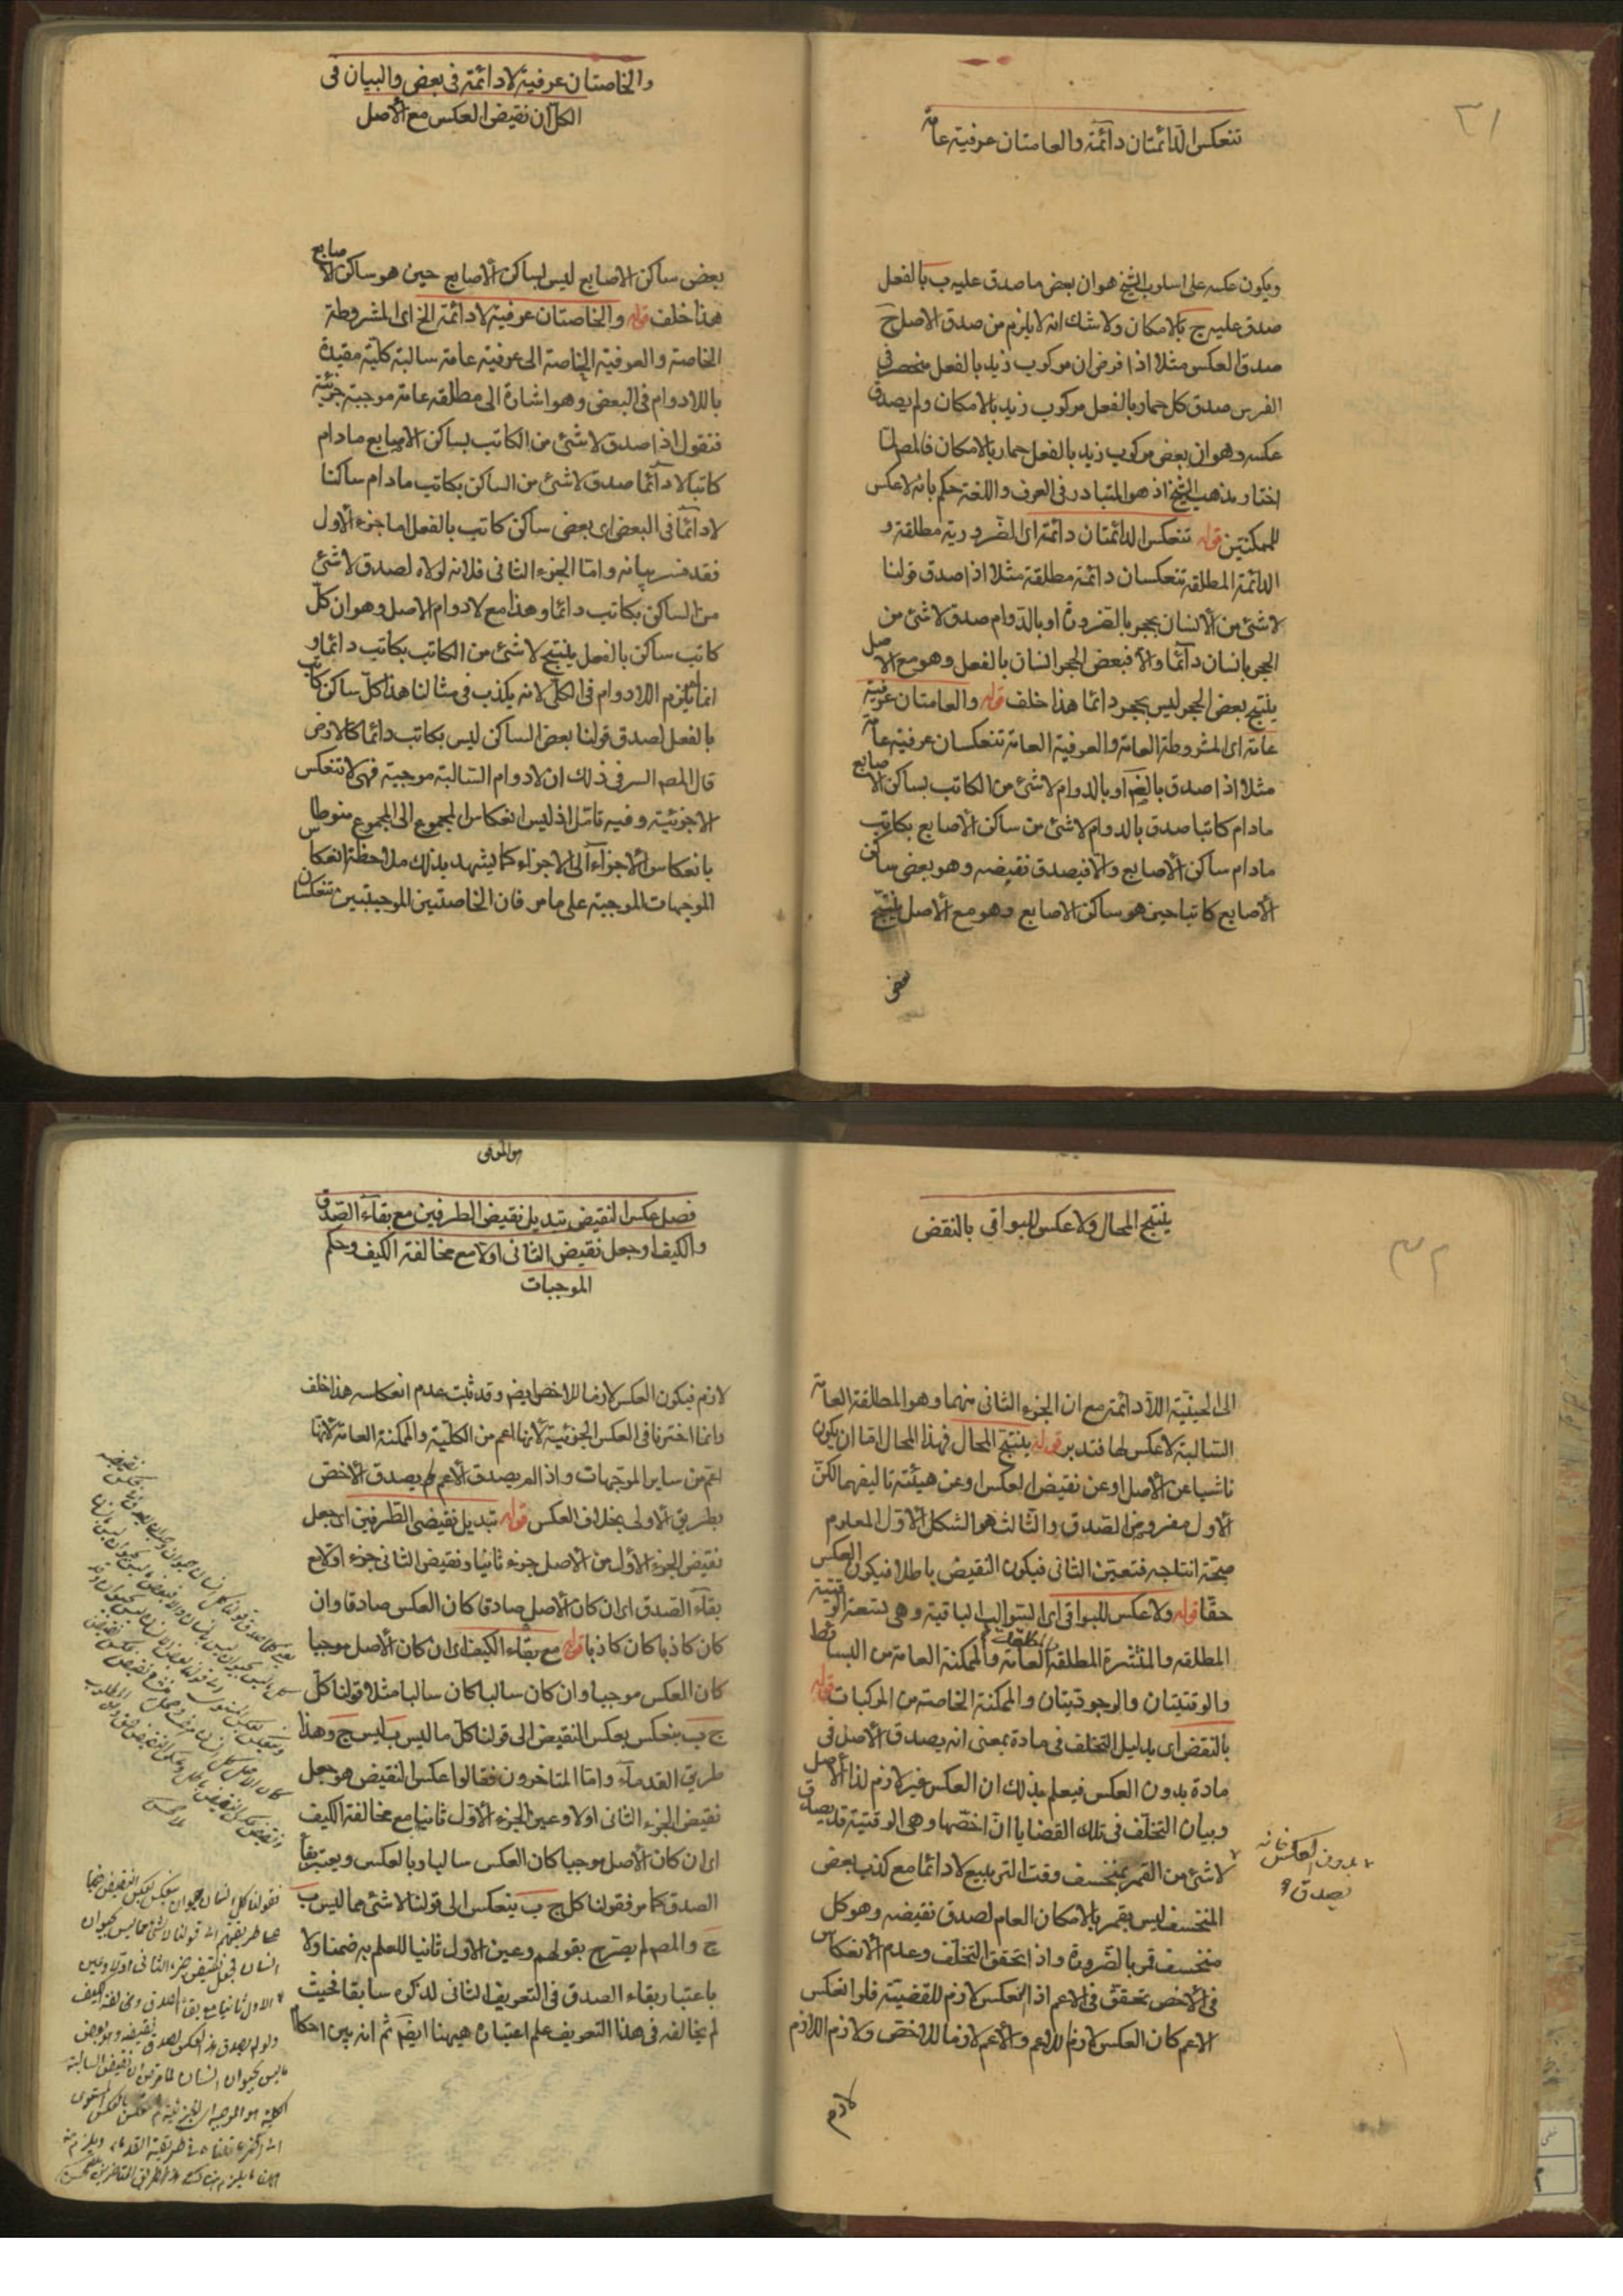 ٣١
تنعكس الدائمتان دائمة والعامتان عرفية عامة
ويكون عكسه على اسلوب الشيخ هو ان بعض ما صدق عليه ب بالفعل
صدق عليه ج بالامكان ولا شك انه لا يلزم من صدق الاصل ح
صدق العكس مثلا اذا فرض ان مركوب زيد بالفعل منحصر فى
الفرس صدق كل حمار بالفعل مركوب زيد بالامكان ولم يصدق
عكسه وهو ان بعض مركوب زيد بالفعل حمار بالامكان فالمص لما
اختار مذهب الشيخ اذ هو المتبادر فى العرف واللغة حكم بانه لا عكس
للممكنتين قوله تنعكس الدائمتان دائمة اى الضرورية مطلقة و
الدائمة المطلقة تنعكسان دائمة مطلقة مثلا اذا صدق قولنا
لا شئ من الانسان بحجر بالضرورة او بالدوام صدق لا شئ من
الحجر بانسان دائما والا فبعض الحجر انسان بالفعل وهو مع الاصل
ينتج بعض الحجر ليس بحجر دائما هذا خلف قوله والعامتان عرفية
عامة اى المشروطة العامة والعرفية العامة تنعكسان عرفية عامة
مثلا اذا صدق بالضرورة او بالدوام لا شئ من الكاتب بساكن الاصابع
مادام كاتبا صدق بالدوام لا شئ من ساكن الأصابع بكاتب
مادام ساكن الأصابع والا فيصدق نقيضه وهو بعض ساكن
الأصابع كاتبا حين هو ساكن الاصابع وهو مع الأصل ينتج
بعض
والخاصتان عرفية لا دائمة فى بعض والبيان فى
الكل ان نقيض العكس مع الأصل
بعض ساكن الاصابع ليس بساكن الأصابع حين هو ساكن الاصابع
هذا خلف قوله والخاصتان عرفية لا دائمة الخ اى المشروطة
الخاصة والعرفية الخاصة الى عرفية عامة سالبة كلية مقيدة
باللادوام فى البعض وهو اشارة الى مطلقة عامة موجبة جزئية
فنقول اذا صدق لا شئ من الكاتب بساكن الاصابع مادام
كاتبا لا دائما صدق لا شئ من الساكن بكاتب مادام ساكنا
لا دائما فى البعض اى بعض ساكن كاتب بالفعل اما جزء الأول
فقد مر بيانه واما الجزء الثانى فلانه لولاه لصدق لا شئ
من الساكن بكاتب دائما وهذا مع لا دوام الاصل وهو ان كل
كاتب ساكن بالفعل ينتج لا شئ من الكاتب بكاتب دائما و
انما لم يلزم اللادوام فى الكل لانه يكذب فى مثالنا هذا كل ساكن كاتب
بالفعل لصدق قولنا بعض الساكن ليس بكاتب دائما كالارض
قال المص السر فى ذلك ان لا دوام السالبة موجبة فهى لا تنعكس
الا جزئية وفيه تامل اذ ليس انعكاس المجموع الى المجموع منوطا
بانعكاس الأجزاء الى الاجزاء كما يشهد بذلك ملاحظة انعكاس
الموجهات الموجبة على ما مر فان الخاصتين الموجبتين تنعكسان
٣٢
ينتج المحال ولا عكس للبواقى بالنقض
الى الحينية اللا دائمة مع ان الجزء الثانى منهما وهو المطلقة العامة
السالبة لا عكس لها فتدبر قوله ينتج المحال فهذا المحال اما ان يكون
ناشيا عن الأصل او عن نقيض العكس او عن هيئة تاليفهما لكن
الأول مفروض الصدق والثالث هو الشكل الأول المعلوم
صحة انتاجه فتعين الثانى فيكون النقيض باطلا فيكون العكس
حقا قوله ولا عكس للبواقى اى السوالب الباقية وهى تسعة الوقتية
المطلقة والمنتشرة المطلقة والمطلقة العامة والممكنة العامة من البسائط
والوقتيتان والوجوديتان والممكنة الخاصة من المركبات قوله
بالنقض اى بدليل التخلف فى مادة بمعنى انه يصدق الأصل فى
مادة بدون العكس فيعلم بذلك ان العكس غير لازم لذا الأصل
وبيان التخلف فى تلك القضايا ان اخصها وهى الوقتية قد يصدق
لا شئ من القمر بمنخسف وقت التربيع لا دائما مع كذب بعض
المنخسف ليس بقمر بالامكان العام لصدق نقيضه وهو كل
منخسف قمر بالضرورة واذا تحقق التخلف وعدم الانعكاس
فى الأخص تحقق فى الاعم اذ العكس لازم للقضية فلو انعكس
الاعم كان العكس لازم للاعم والأعم لازما للاخص ولازم اللازم
بدون العكس فانه
يصدق
لازم
هو الموفق
فصل عكس النقيض تبديل نقيض الطرفين مع بقاء الصدق
والكيف او جعل نقيض الثانى اولا مع مخالفة الكيف وحكم
الموجبات
لازم فيكون العكس لازما للاخص ايض وقد ثبت عدم انعكاسه هذا خلف
وانما اخترنا فى العكس الجزئية لأنها اعم من الكلية والممكنة العامة لأنها
اعم من ساير الموجهات واذا لم يصدق الأعم لم يصدق الأخص
بطريق الأولى بخلاف العكس قوله تبديل نقيضى الطرفين اى جعل
نقيض الجزء الأول من الأصل جزء ثانيا ونقيض الثانى جزء اولا مع
بقاء الصدق اى ان كان الأصل صادقا كان العكس صادقا وان
كان كاذبا كان كاذبا قوله مع بقاء الكيف اى ان كان الأصل موجبا
كان العكس موجبا وان كان سالبا كان سالبا مثلا قولنا كل
ج ب ينعكس بعكس النقيض الى قولنا كل ما ليس ب ليس ج وهذا
طريق القدماء واما المتاخرون فقالوا عكس النقيض هو جعل
نقيض الجزء الثانى اولا وعين الجزء الأول ثانيا مع مخالفة الكيف
اى ان كان الأصل موجبا كان العكس سالبا وبالعكس ويعتبر بقاء
الصدق كما مر فقولنا كل ج ب ينعكس الى قولنا لا شئ مما ليس ب
ج والمص لم يصرح بقولهم وعين الاول ثانيا للعلم به ضمنا ولا
باعتبار بقاء الصدق فى التعريف الثانى لذكره سابقا فحيث
لم يخالفه فى هذا التعريف علم اعتباره هيهنا ايض ثم انه بين احكام
فقولنا كل انسان حيوان ينعكس بعكس النقيض
على طريقتهم الى قولنا لا شئ مما ليس بحيوان
انسان
الاول ثانيا مع بقاء الصدق ومخالفة الكيف
ولو لم يصدق هذا العكس لصدق نقيضه وهو بعض
ما ليس بحيوان انسان
الكلية هو الموجبة الجزئية